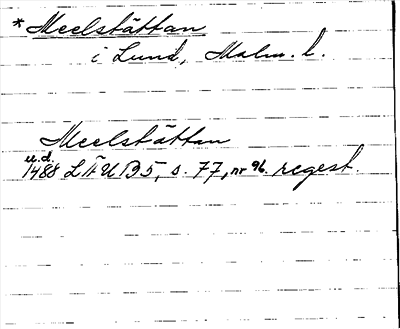 * Meelstättan
i Lund, Malm. l.
Meelstättan
u.d.
1488 LÄU B5, s. 77, nr 96. regest.